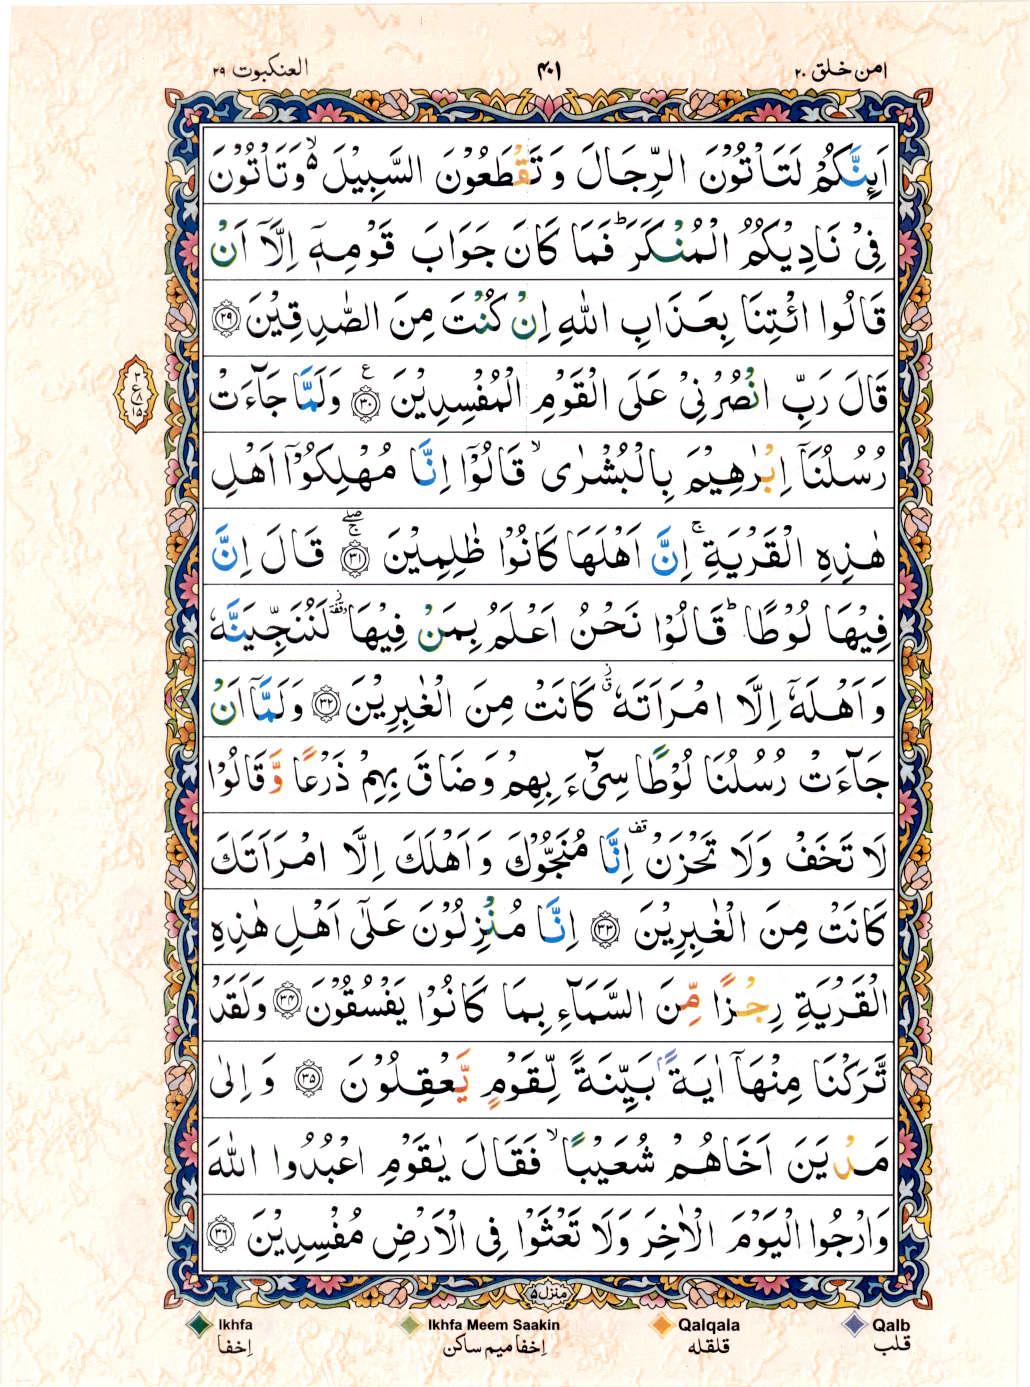 امن خلق ۲۰
۴۰۱
العنکبوت ۲۹
اَئِنَّكُمْ لَتَاْتُوْنَ الرِّجَالَ وَ تَقْطَعُوْنَ السَّبِیْلَ ۙ۬ وَ تَاْتُوْنَ
فِیْ نَادِیْكُمُ الْمُنْكَرَ ؕ فَمَا كَانَ جَوَابَ قَوْمِهٖۤ اِلَّاۤ اَنْ
قَالُوا ائْتِنَا بِعَذَابِ اللّٰهِ اِنْ كُنْتَ مِنَ الصّٰدِقِیْنَ ﴿۲۹﴾
قَالَ رَبِّ انْصُرْنِیْ عَلَى الْقَوْمِ الْمُفْسِدِیْنَ ﴿۳۰﴾ ع وَ لَمَّا جَآءَتْ
رُسُلُنَاۤ اِبْرٰهِیْمَ بِالْبُشْرٰى ۙ قَالُوْۤا اِنَّا مُهْلِكُوْۤا اَهْلِ
هٰذِهِ الْقَرْیَةِ ۚ اِنَّ اَهْلَهَا كَانُوْا ظٰلِمِیْنَ ﴿۳۱﴾ ۚۖ قَالَ اِنَّ
فِیْهَا لُوْطًا ؕ قَالُوْا نَحْنُ اَعْلَمُ بِمَنْ فِیْهَا ٙ لَنُنَجِّیَنَّهٗ
وَ اَهْلَهٗۤ اِلَّا امْرَاَتَهٗ ٙ كَانَتْ مِنَ الْغٰبِرِیْنَ ﴿۳۲﴾ وَ لَمَّاۤ اَنْ
جَآءَتْ رُسُلُنَا لُوْطًا سِیْٓءَ بِهِمْ وَ ضَاقَ بِهِمْ ذَرْعًا وَّ قَالُوْا
لَا تَخَفْ وَ لَا تَحْزَنْ قف اِنَّا مُنَجُّوْكَ وَ اَهْلَكَ اِلَّا امْرَاَتَكَ
كَانَتْ مِنَ الْغٰبِرِیْنَ ﴿۳۳﴾ اِنَّا مُنْزِلُوْنَ عَلٰۤى اَهْلِ هٰذِهِ
الْقَرْیَةِ رِجْزًا مِّنَ السَّمَآءِ بِمَا كَانُوْا یَفْسُقُوْنَ ﴿۳۴﴾ وَ لَقَدْ
تَّرَكْنَا مِنْهَاۤ اٰیَةًۢ بَیِّنَةً لِّقَوْمٍ یَّعْقِلُوْنَ ﴿۳۵﴾ وَ اِلٰى
مَدْیَنَ اَخَاهُمْ شُعَیْبًا ۙ فَقَالَ یٰقَوْمِ اعْبُدُوا اللّٰهَ
وَ ارْجُوا الْیَوْمَ الْاٰخِرَ وَ لَا تَعْثَوْا فِی الْاَرْضِ مُفْسِدِیْنَ ﴿۳۶﴾
منزل ۵
Ikhfa Ikhfa Meem Saakin Qalqala Qalb
اِخفا اِخفا میم ساکن قلقله قلب